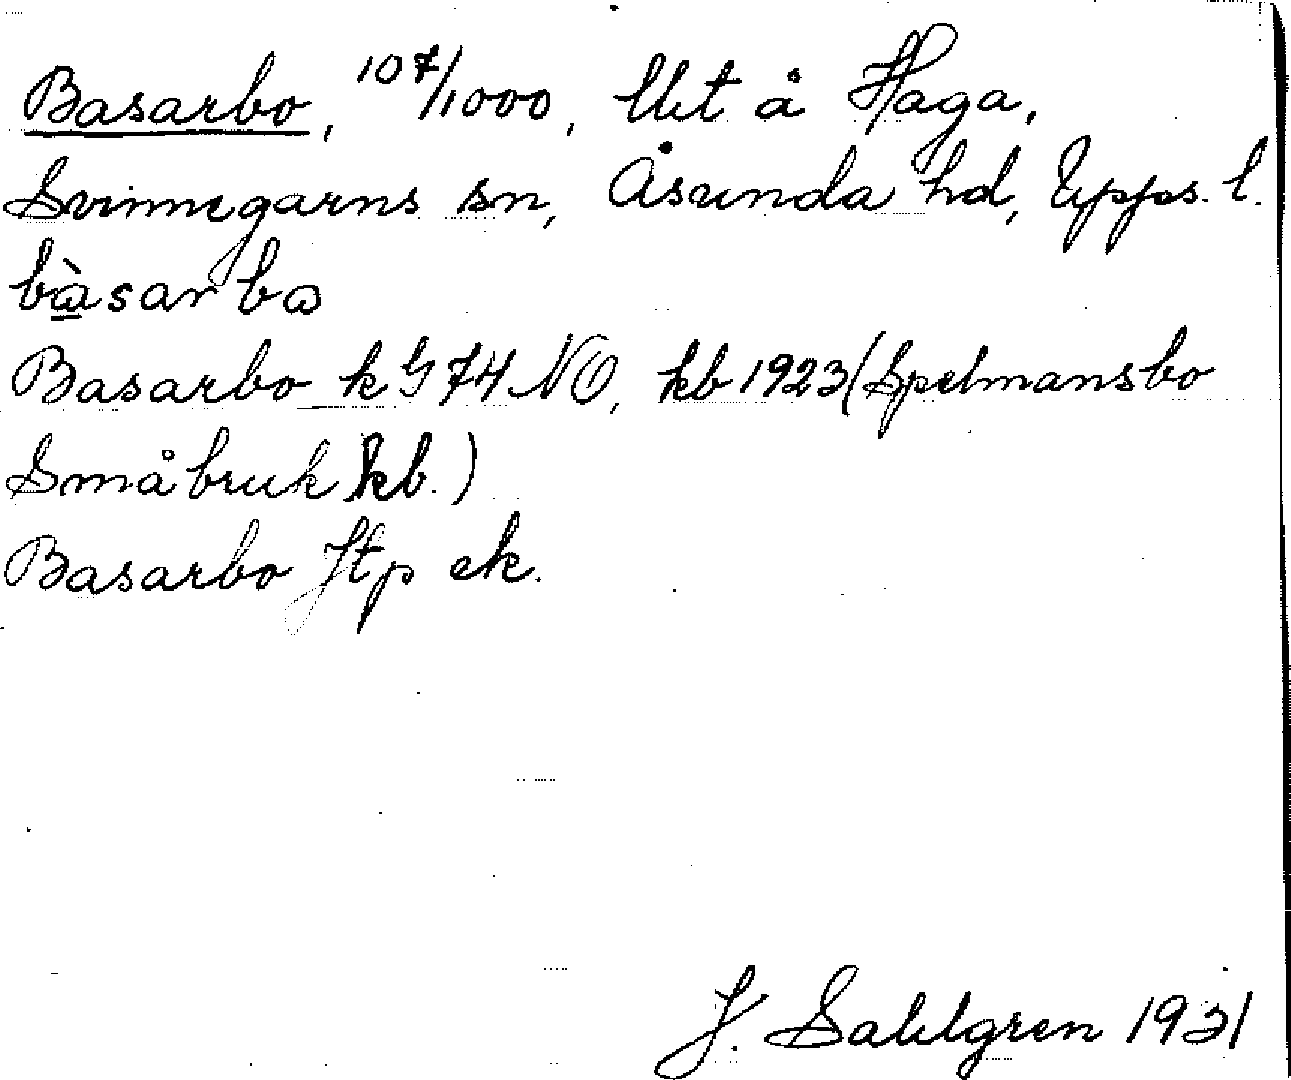 Basarbo, 107/1000, lht å Haga,
Svinnegarns sn, Åsunda hd, Upps. l.
bàsarbo
Basarbo k G 74 NO, kb 1923 (Spelmansbo
Småbruk kb.)
Basarbo Jtp ek.
J. Sahlgren 1931